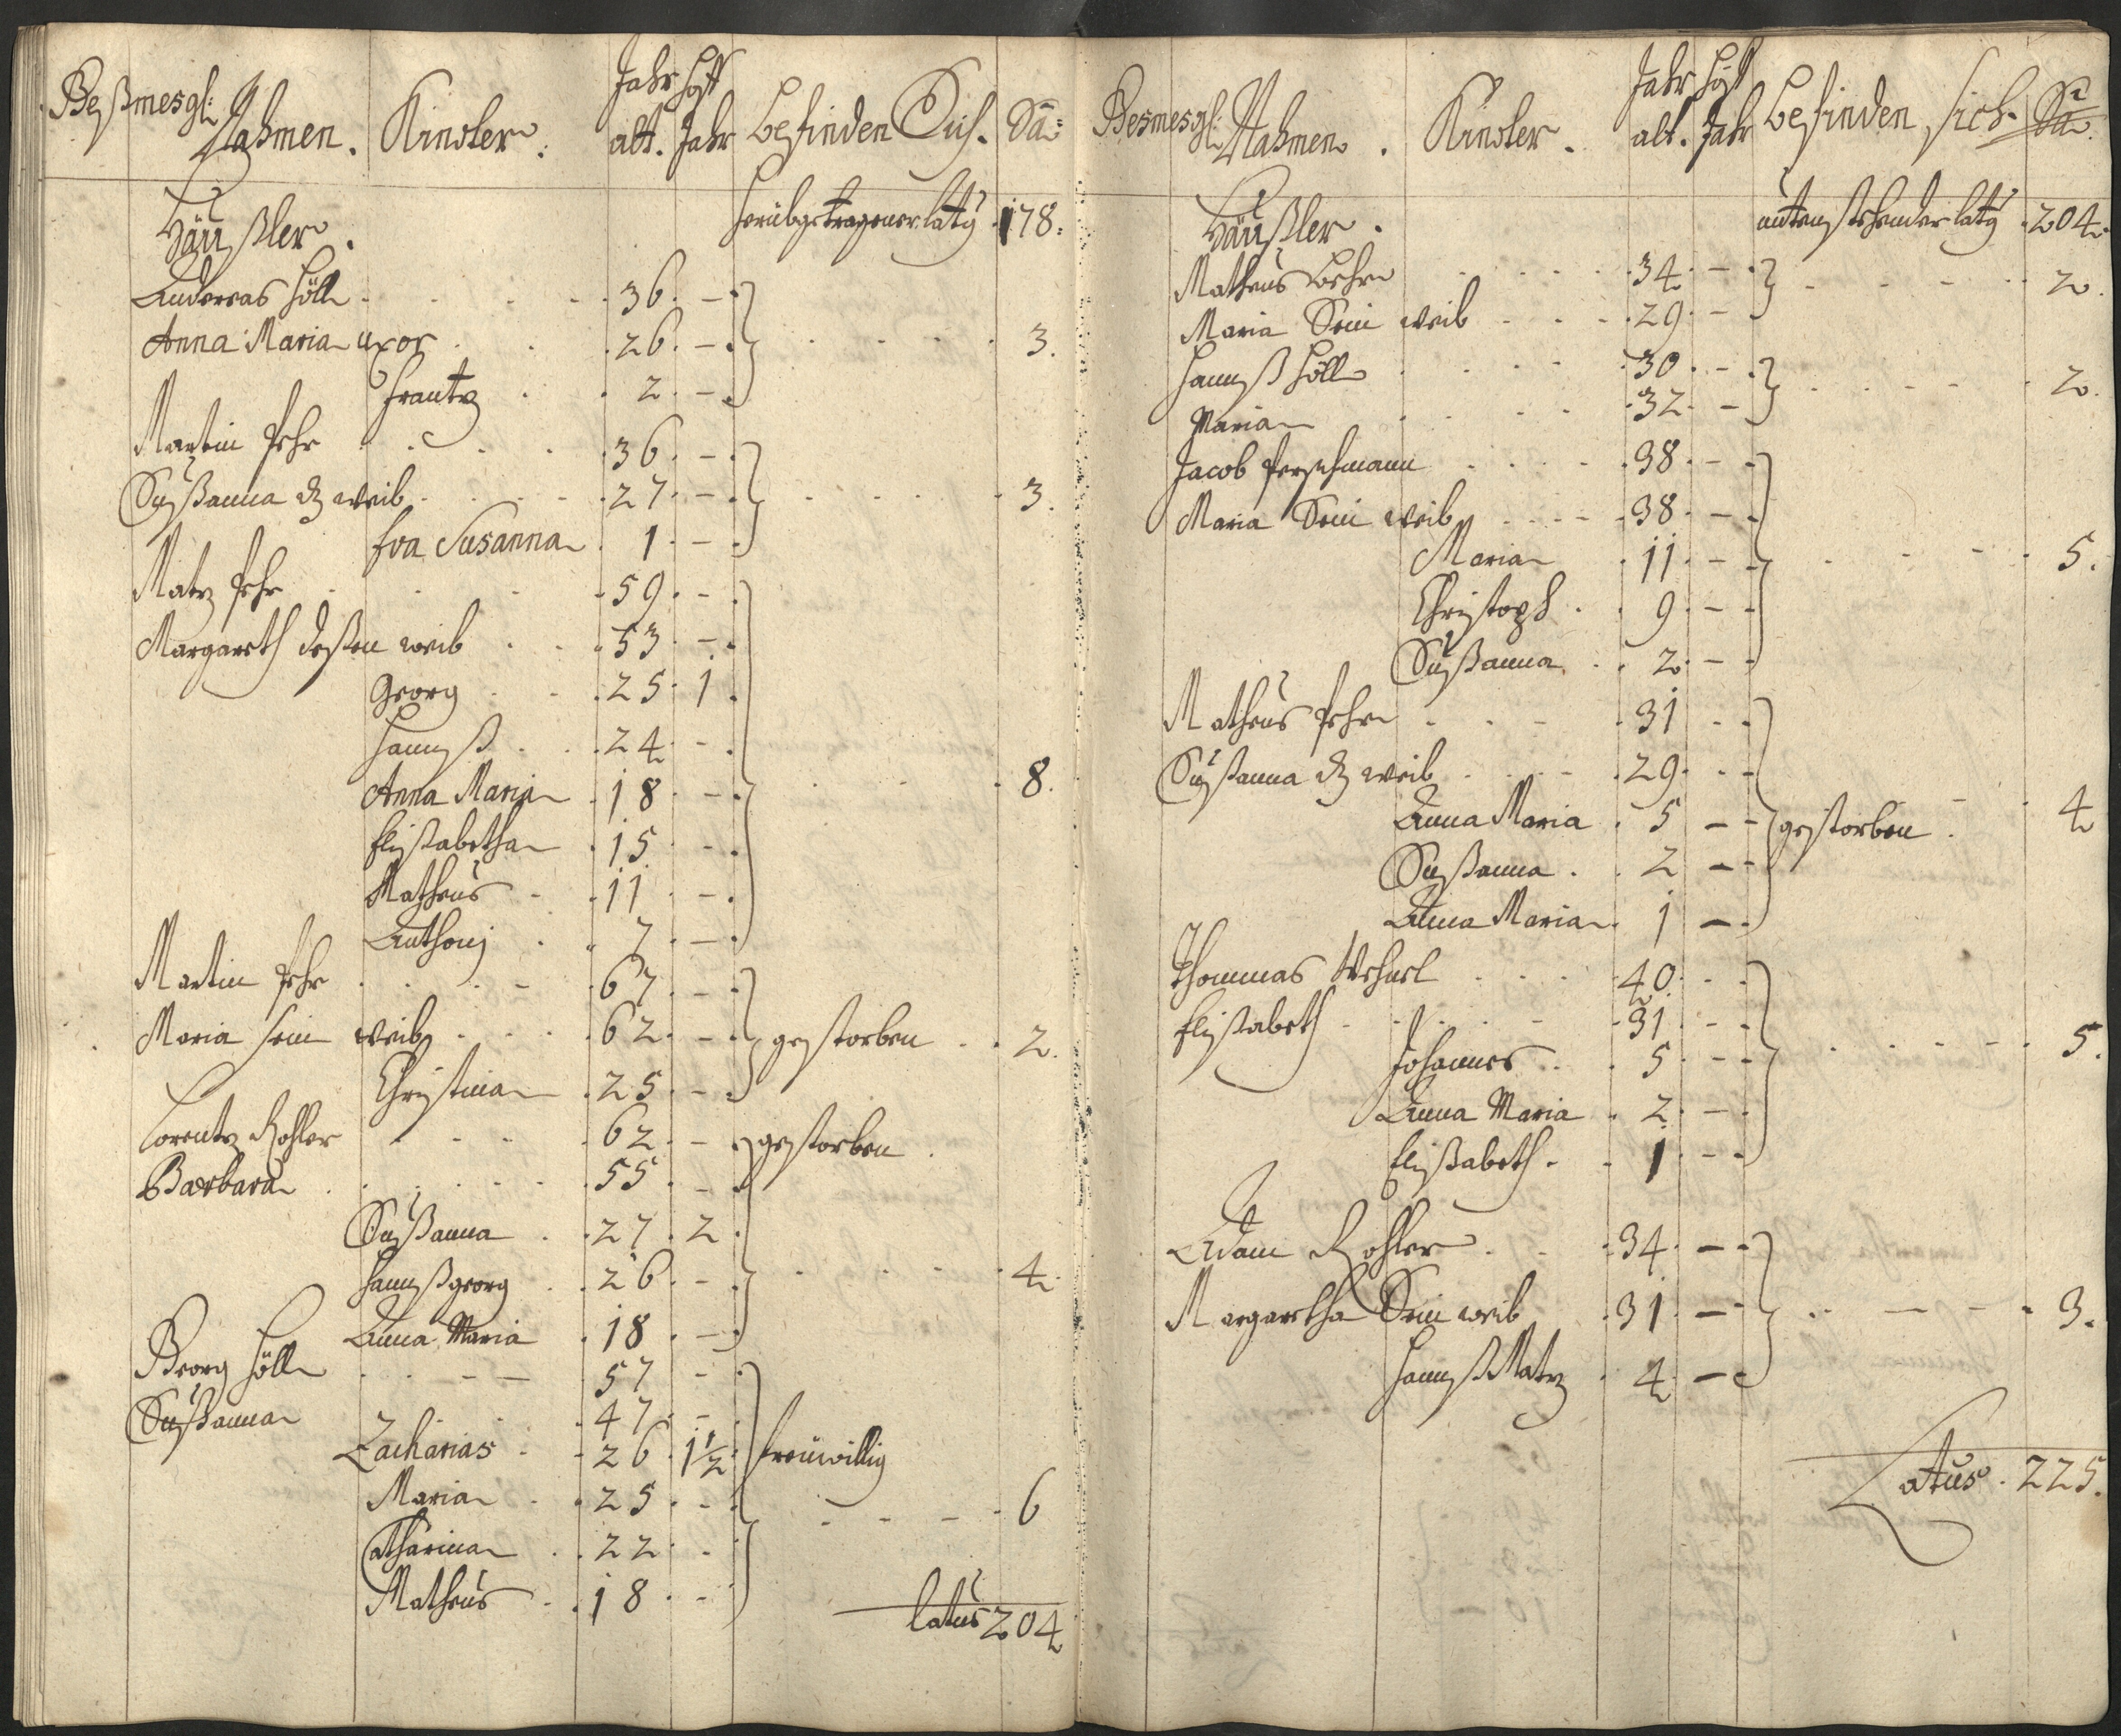 Beßmesgl: Nahmen. Kinder. Jahr alt. Hoff Jahr befinden Sich. Sa:
Häußler. herübgetragener latg 178.
Andereas Höll 36. -
Anna Maria uxor 26. - 3.
Frantz 2. -
Martin Pehr 36. -
Sußanna d. weib 27. - 3.
Eva Susanna 1 -
Matz Pehr 59. -
Margareth deßen weib 53 -
Georg 25. 1.
Hannß 24. -
Anna Maria 18 - 8.
Elisabetha 15 -
Matheus 11 -
Anthonj 7. -
Martin Pehr 67. -
Maria sein weib 62. - gestorben 2.
Christina 25. -
Lorentz Rohler 62. - gestorben
Barbara 55. -
Sußanna 27. 2.
Hannßgeorg 26. - 4.
Anna Maria 18. -
Georg Höll 57 -
Sußanna 47. -
Zacharias 26 1 1/2 freuwillig
Maria 25. - 6
Catharina 22. -
Matheus 18. -
latus 204
Besmesgl: Nahmen. Kinder. Jahr alt. Hoff Jahr befinden sich Sa.
Häußler. untenstehender latg 204.
Matheus 34. - 2.
Maria Sein weib 29. -
Hannß Höll 30. - 2.
Maria 32. -
Jacob Perschmann 38. -
Maria Sein weib 38. -
Maria 11. - 5.
Christoph 9. -
Sußanna 2. -
Matheus Pehr 31 -
Sußanna d. weib 29. -
Anna Maria 5 - gestorben 4
Sußanna 2 -
Anna Maria 1 -
Thommas 40. -
Elisabeth 31 -
Johannes 5. - 5.
Anna Maria 2. -
Elisabeth 1 -
Adam Rohler 34. -
Margaretha Sein weib 31. - 3.
Hannß Matz 4. -
Latus. 225.